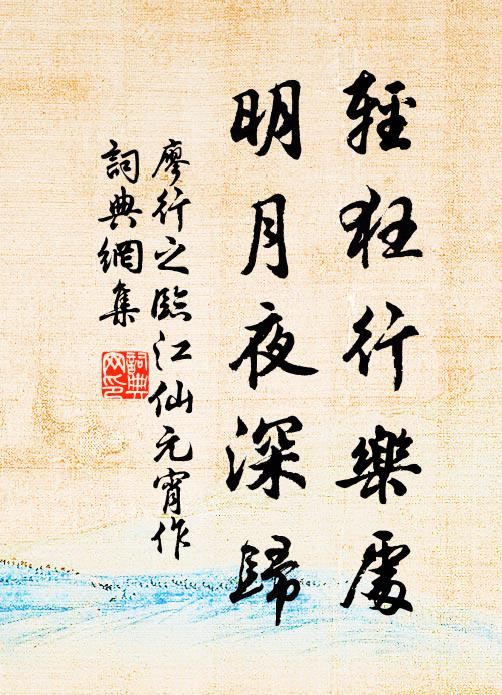 輕狂行樂處
明月夜深歸
廖行之臨江仙元宵作
詞典網集
詞典网印